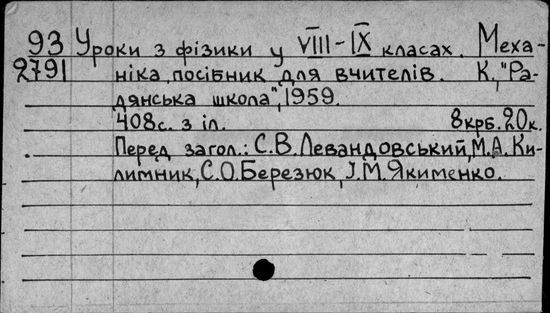 93 Уроки з фізики у VIII-IX класах. Меха-
2791 ніка, посібник для вчителів. К., "Ра-
дянська школа", 1959.
408с. з іл. 8крб. 20к.
Перед загол.: С.В. Левандовський, М.А. Ки-
лимник, С.О. Березюк, І.М. Якименко.